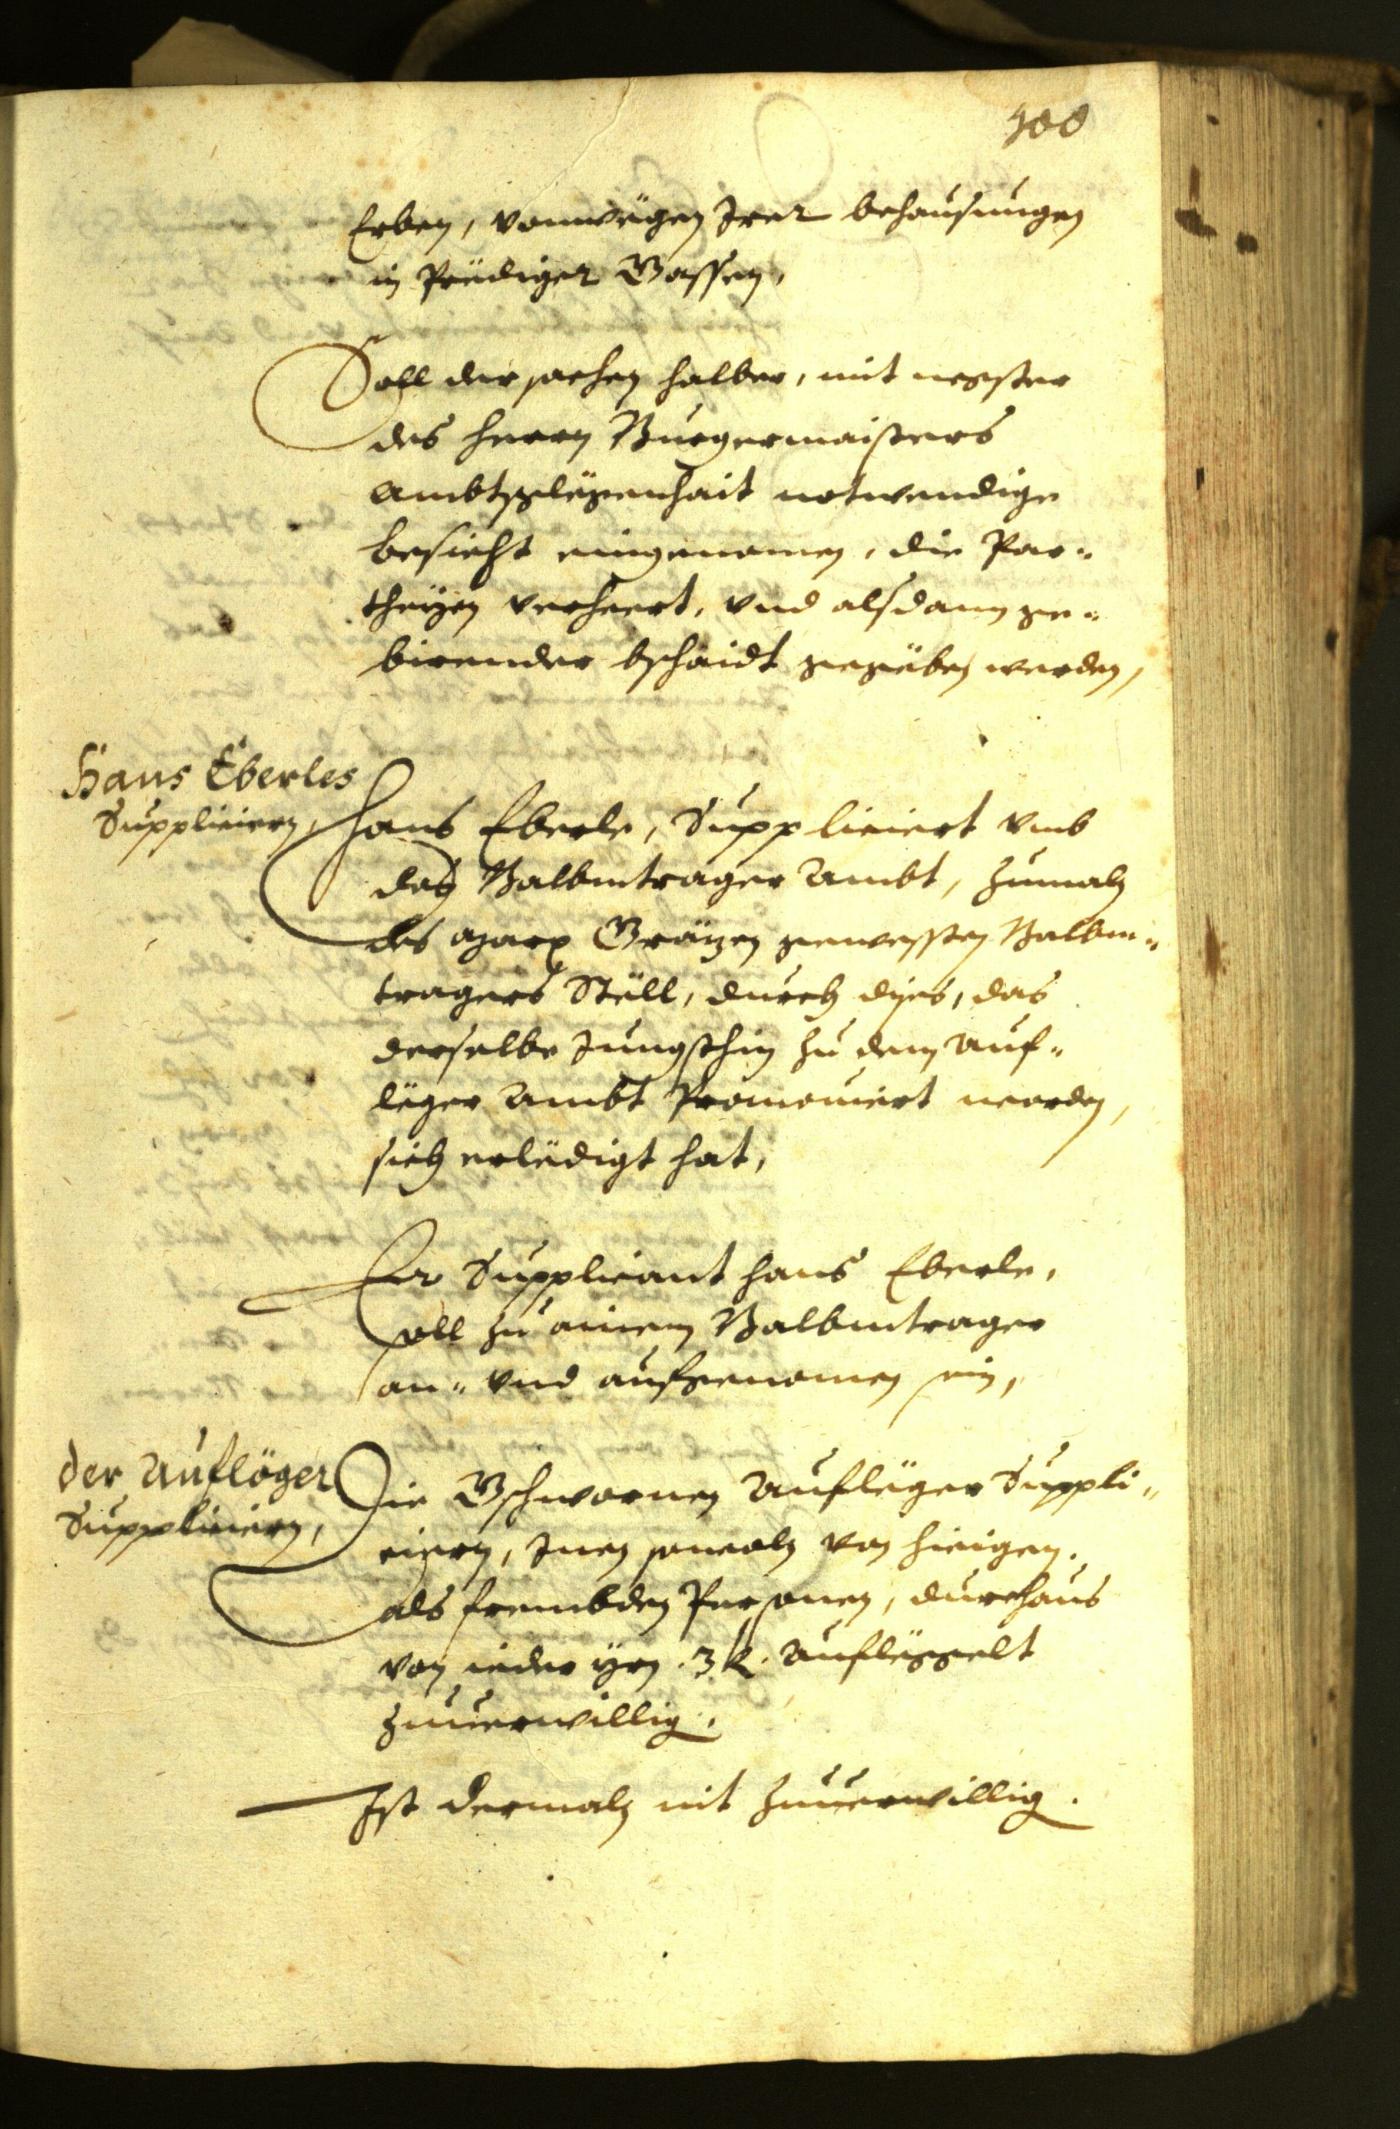 400
Erben, vonwegen Irer behausungen
in Prediger Gassen,
Soll der sachen halber, mit negster
des herrn Burgermaisters
Ambtsglegenhait notwendige
besicht eingenomen, die Par-
theyen verheert, vnd alsdann ge-
birender bschaidt gegeben werden,
Hans Eberles
Supplicieren,
Hans Eberle, Suppliciert vmb
das Balbmtrager Ambt, zumaln
des Marx Gräzen gewessten Balbm-
tragers Stell, durch dyes, das
derselbe Jungsthin zu dem Auf-
leger Ambt Promouiert worden,
sich erledigt hat,
Er Supplicant hans Eberle,
soll zu ainem Balbmtrager
an- vnd aufgenomen sein,
Der Auflöger
Supplicieren,
Die Gschwornen Aufleger Suppli-
ciern, Inen sowoln von hieigen.
als frembden Personen, durchaus
von ieder yrn .3 k. Aufleggelt
zuuerwillig.
Ist dermaln nit zuuerwillig.